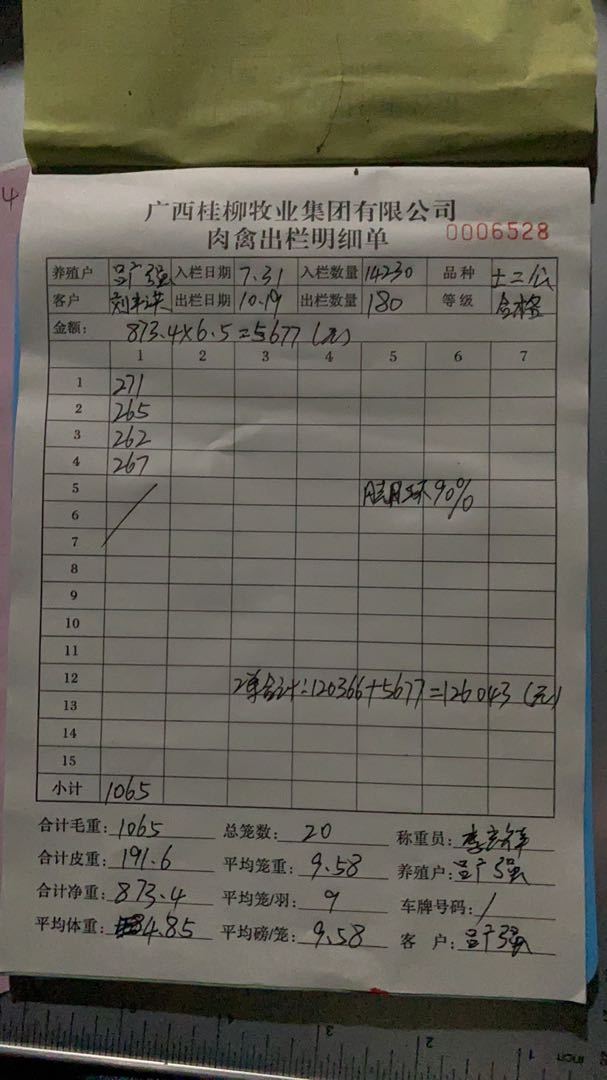 4
广西桂柳牧业集团有限公司
肉禽出栏明细单 0006528
养殖户 吕广强 入栏日期 7.31 入栏数量 14230 品种 土二公
客户 出栏日期 10.19 出栏数量 180 等级 合格
金额: 873.4×6.5=5677(元)
1 2 3 4 5 6 7
1 271
2 265
3 262
4 267
5 90%
6
7
8
9
10
11
12 2单合计:120366+5677=126043(元)
13
14
15
小计 1065
合计毛重: 1065 总笼数: 20 称重员:
合计皮重: 191.6 平均笼重: 9.58 养殖户: 吕广强
合计净重: 873.4 平均笼/羽: 9 车牌号码: /
平均体重: 4.85 平均磅/笼: 9.58 客 户: 吕广强
3 2 1
inch